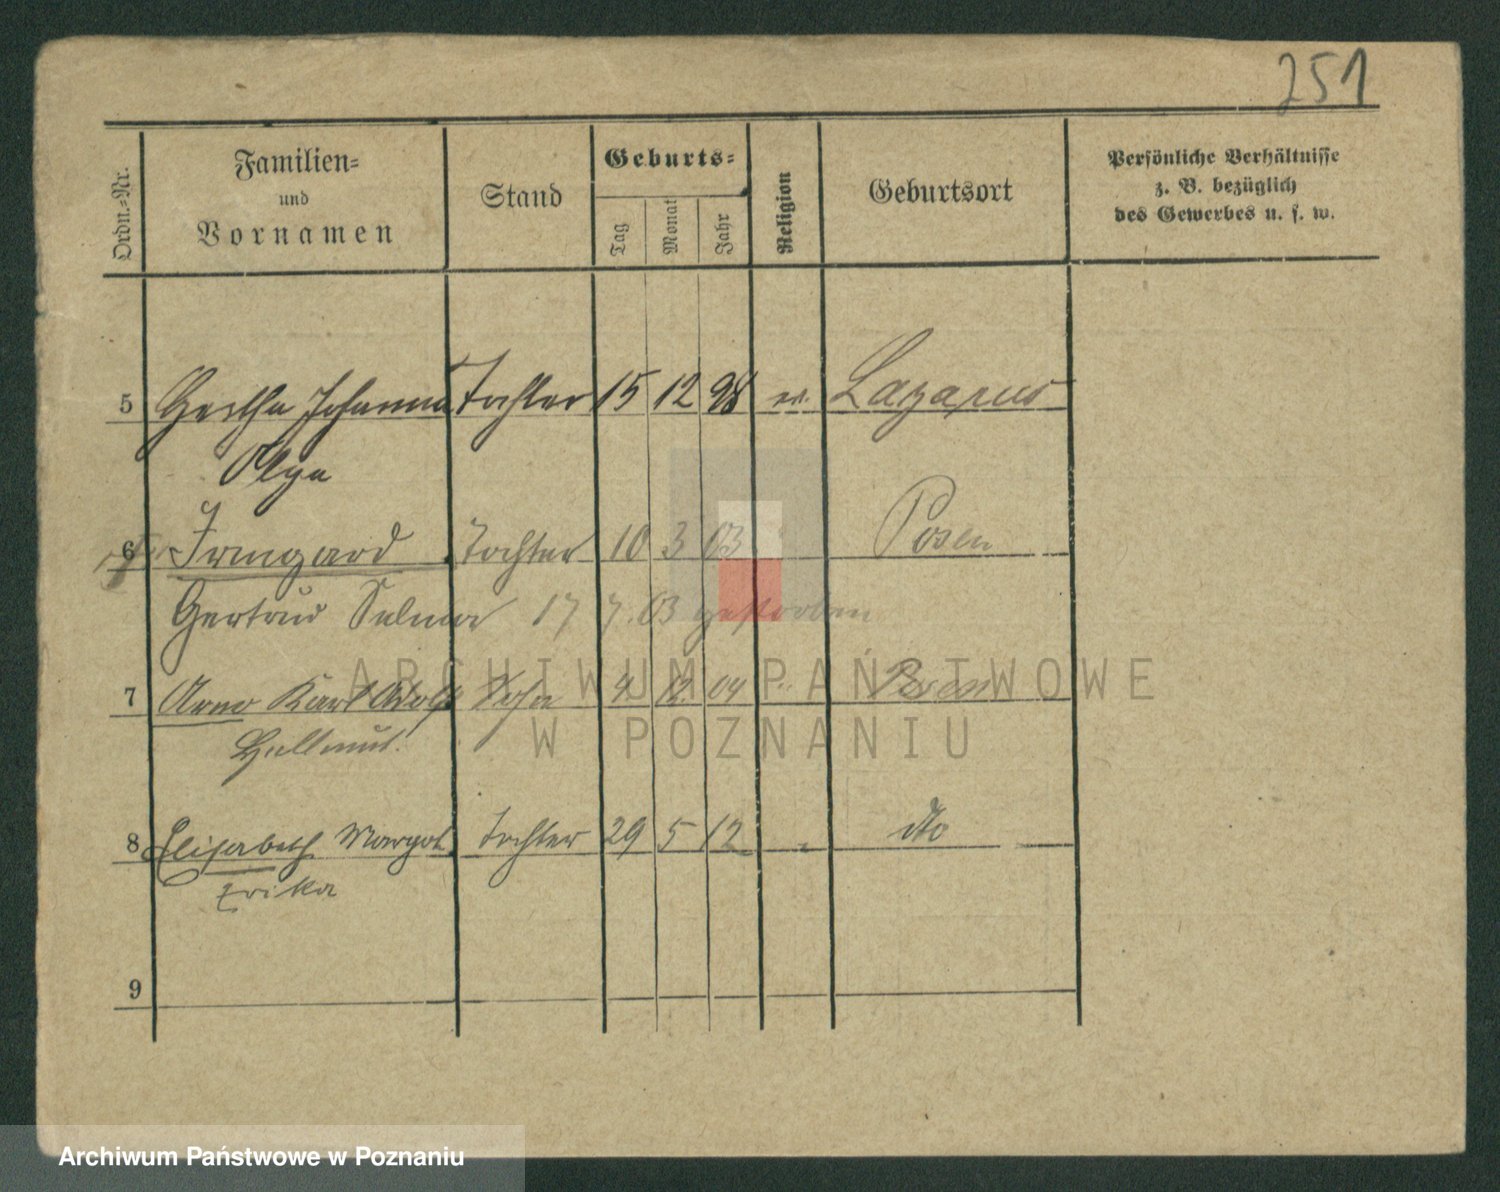 251
Ordn.-Nr.
Familien-
und
Vornamen
Stand
Geburts-
Tag
Monat
Jahr
Religion
Geburtsort
Persönliche Verhältnisse
z. B. bezüglich
des Gewerbes u. s. w.
5 Gertha Johanna Tochter 15 12 98 ev. Lazarus
Olga
6 Irmgard Tochter 10 3 03 Posen
Gertrud Selma 17 7. 03 gestorben
7 Arno Karl Adolf Sohn 4 12 04 " Posen
Hellmut.
8 Elisabeth Margot Tochter 29 5 12 " dto
Erika
9
ARCHIWUM PAŃSTWOWE
W POZNANIU
Archiwum Państwowe w Poznaniu